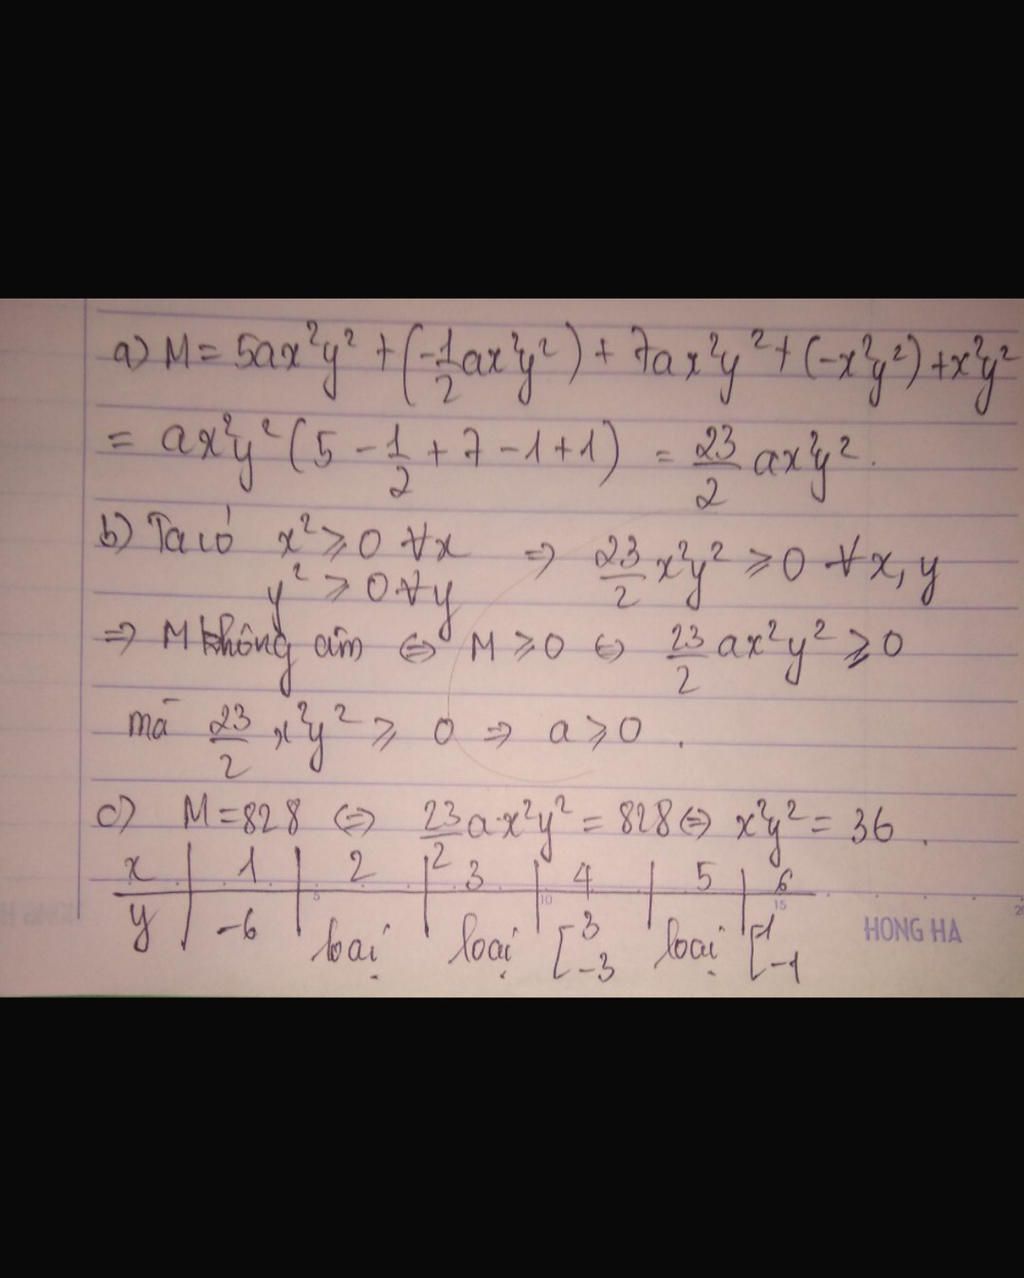 a) M = 5ax²y² + (-1/2 ax²y²) + 7ax²y² + (-x²y²) + x²y²
= ax²y² (5 - 1/2 + 7 - 1 + 1) = 23/2 ax²y².
b) Ta có x² ≥ 0 ∀x ⇒ 23/2 x²y² ≥ 0 ∀x, y
y² ≥ 0 ∀y
⇒ M không âm ⇔ M ≥ 0 ⇔ 23/2 ax²y² ≥ 0
mà 23/2 x²y² ≥ 0 ⇒ a ≥ 0.
c) M = 828 ⇔ 23/2 a·x²y² = 828 ⇔ x²y² = 36.
x | 1 | 2 | 3 | 4 | 5 | 6
y | -6 | loại | loại | [3 -3 | loại | [1 -1
5 10 15 20
HONG HA